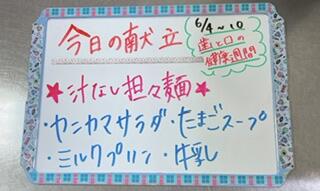 今日の献立
6/4～10
歯と口の
健康週間
★汁なし担々麺★
・カニカマサラダ・たまごスープ
・ミルクプリン・牛乳